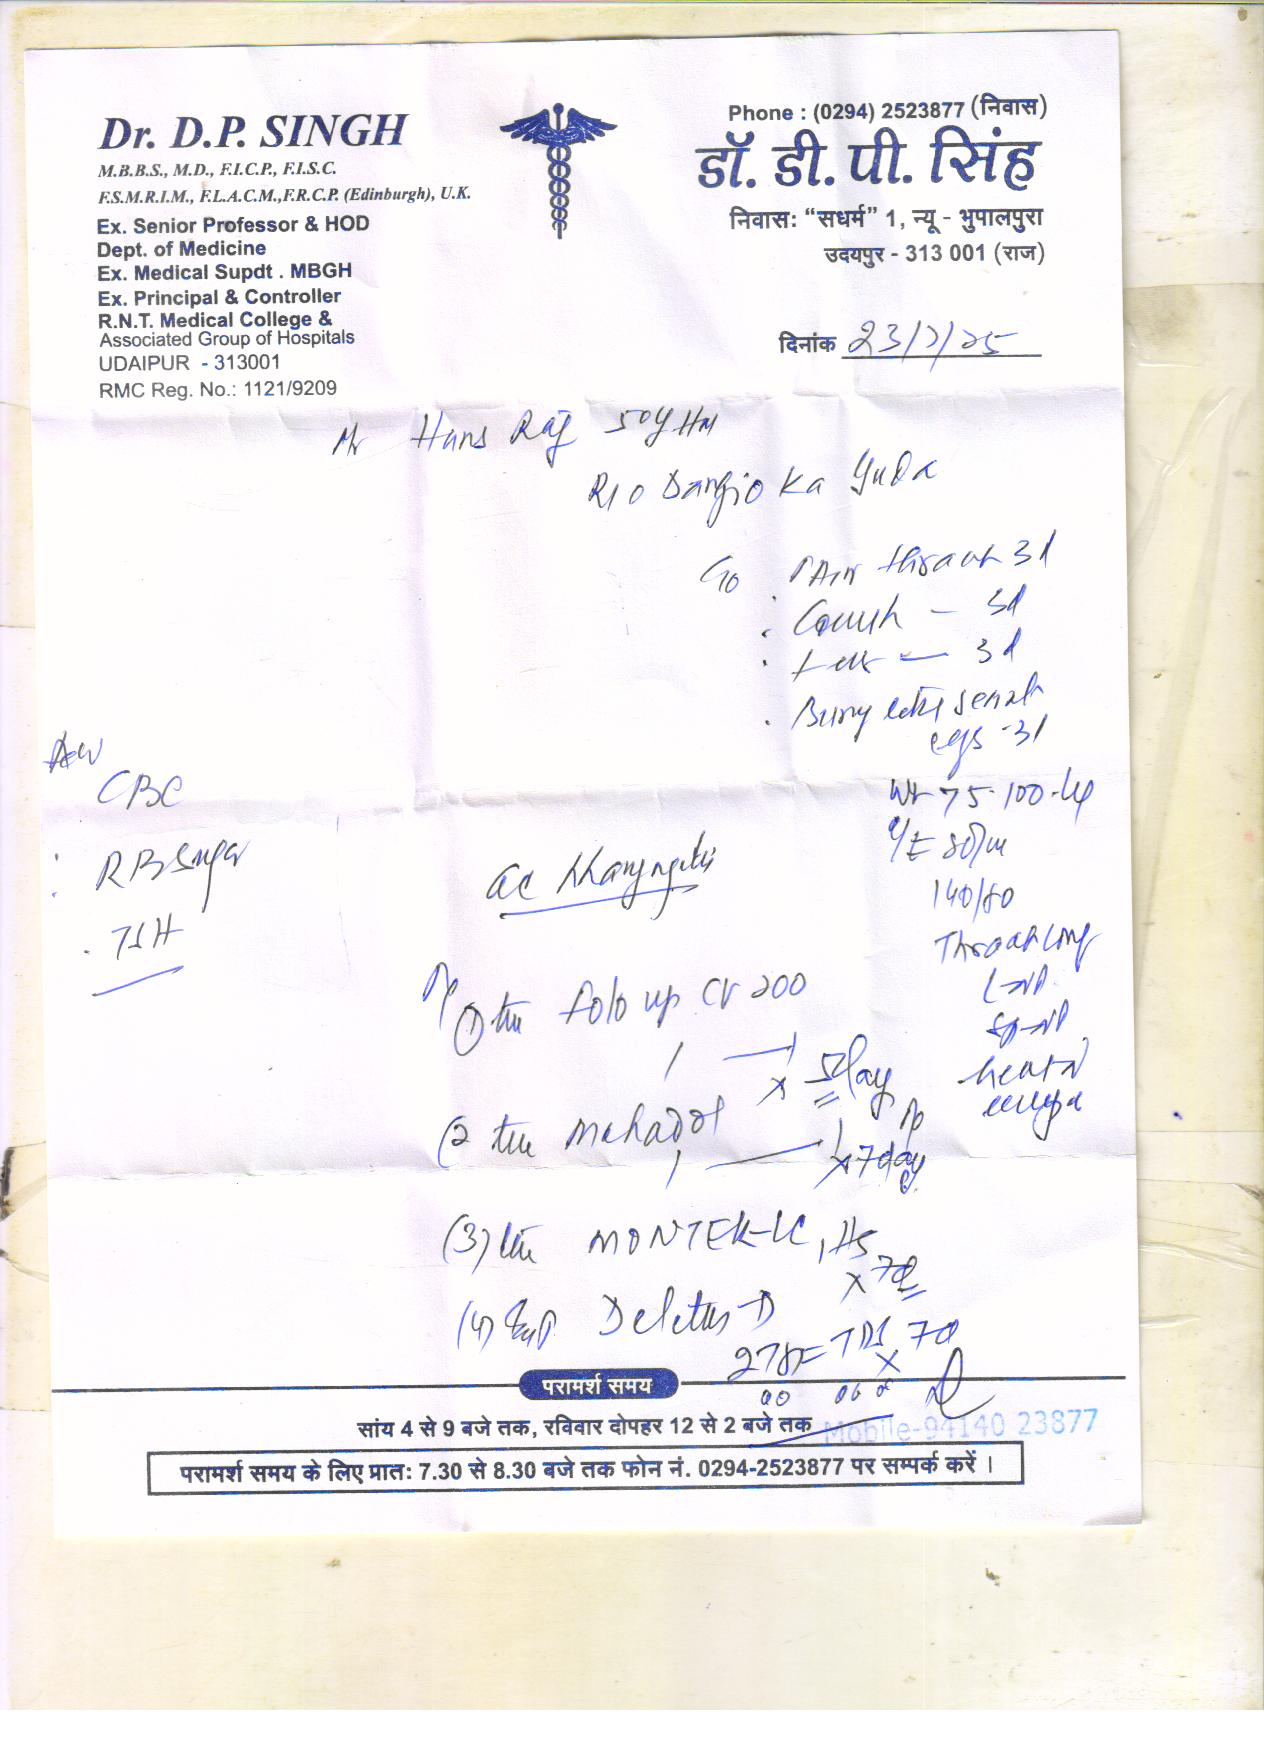 Dr. D.P. SINGH
M.B.B.S., M.D., F.I.C.P., F.I.S.C.
F.S.M.R.I.M., F.L.A.C.M.,F.R.C.P. (Edinburgh), U.K.
Ex. Senior Professor & HOD
Dept. of Medicine
Ex. Medical Supdt . MBGH
Ex. Principal & Controller
R.N.T. Medical College &
Associated Group of Hospitals
UDAIPUR - 313001
RMC Reg. No.: 1121/9209
Phone : (0294) 2523877 (निवास)
डॉ. डी. पी. सिंह
निवास: “सधर्म” 1, न्यू - भुपालपुरा
उदयपुर - 313 001 (राज)
दिनांक 23/7/25
Mr Hans Raj 50y HM
R/o Dangio Ka Guda
C/o Pain throat 3d
Cough - 3d
3d
Wt 75.100 Kg
O/E 80/m
140/80
Throat Cong
CBC
R B Sugar
TSH
ac Pharyngitis
(1) CV 200
1 x 5 day
(2 1 x 7 day
(3) MONTEK-LC 1 HS
x 7d
(4) Syp Deletus-D
TDS x 7d
परामर्श समय
सांय 4 से 9 बजे तक, रविवार दोपहर 12 से 2 बजे तक
Mobile-94140 23877
परामर्श समय के लिए प्रात: 7.30 से 8.30 बजे तक फोन नं. 0294-2523877 पर सम्पर्क करें ।